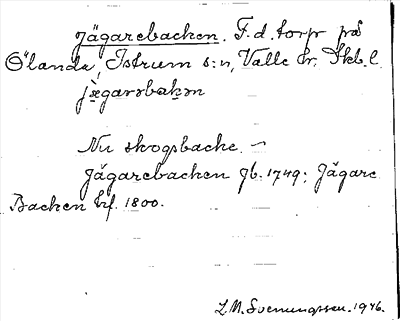 Jägarebacken. F.d. torp på
Ölanda, Istrum s:n, Valle hr. Skb. l.
jægarəbakən
Nu skogsbacke. –
Jägarebacken Jb. 1749; Jägare
Backen hf. 1800.
1946.